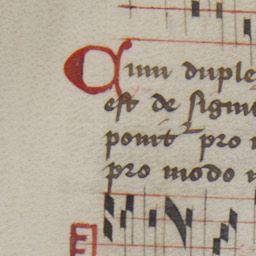 Cum duple
est de signi
ponit pro
pro modo